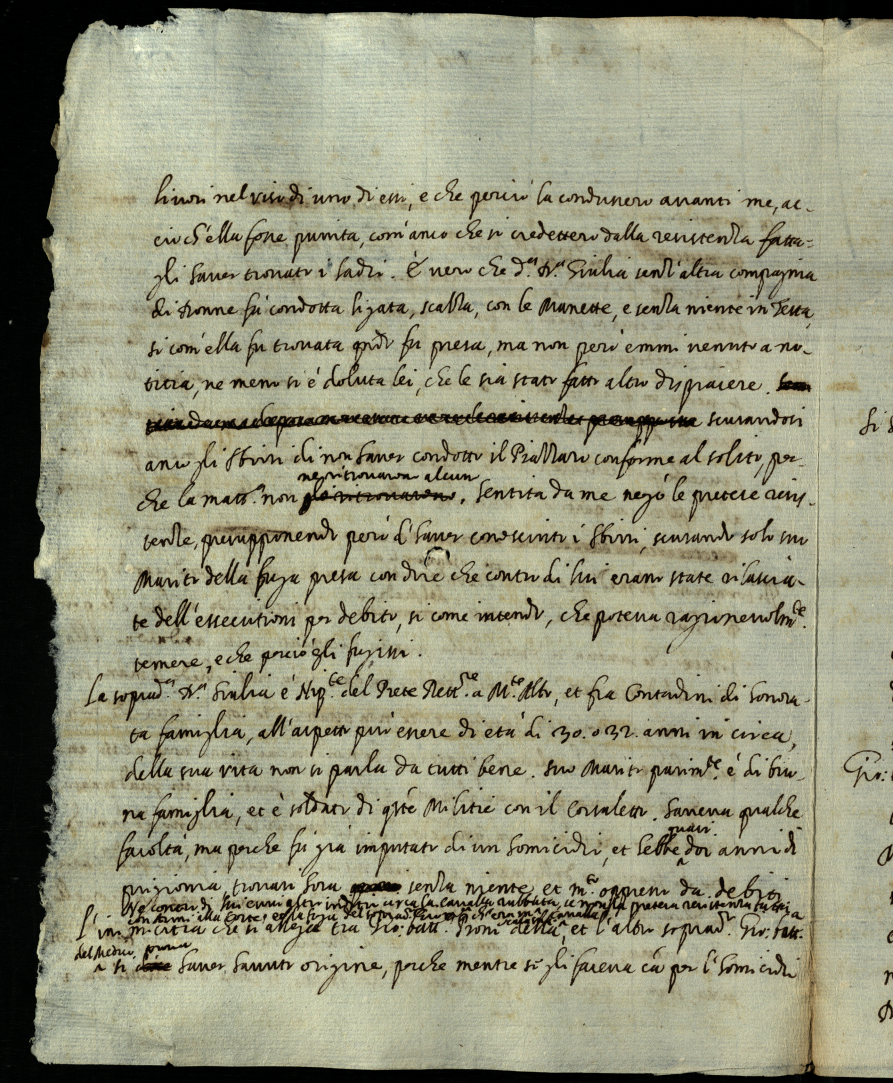 livori nel viso di uno di essi, e che perciò la condussero avanti me, ac-
ciò ch'ella fosse punita, com'anco che si credettero dalla resistenza fatta-
gli haver trovato i ladri. È vero che d.ª D.ª Giulia senz'altra compagnia
di Donne fù condotta ligata, scalza, con le Manette, e senza niente in Testa,
si com'ella fu trovata qndo fu presa, ma non però emmi venuto a no-
titia, ne meno si è doluta lei, che le sia stato fatto altro dispiacere.
scusandosi
anco gli Sbirri di non haver condotto il Piazzaro conforme al solito, per-
che la matt.ª non ne ritrovarono alcun. Sentita da me negò le pretese resis-
tenze, presupponendo però d'haver conosciuto i Sbirri, scusando solo suo
Marito della fuga presa con dire che contro di lui erano state rilascia-
te dell'essecutioni per debito, si come intendo, che poteva ragionevolmte.
temere, e che perciò gli fuggissi.
La soprad.ª D.ª Giulia è Nip.te del Prete Rett.re a M.te Alto, et fra Contadini di honora-
ta famiglia, all'aspetto può essere di età di 30. o 32. anni in circa,
della sua vita non si parla da tutti bene. Suo Marito parim.te è di buo-
na famiglia, et è soldato di q.ste Militie con il Corsaletto. Haveva qualche
facoltà, ma perche fù già imputato di un homicidio, et hebbe quasi doi anni di
prigionia, trovasi hora senza niente, et m.to oppresso da debiti
Ne contro di lui evvi altro inditio circa la cavalla rubbata, se non la pretesa resistenza fatta
con armi alla Corte, e la fuga del
L'inimicitia che si allega tra Gio: batt.ª Proni della, et l'altro soprad.º Gio: batt.ª
del Medico, si haver havuto origine, perche mentre si gli faceva cà per l'homicidio